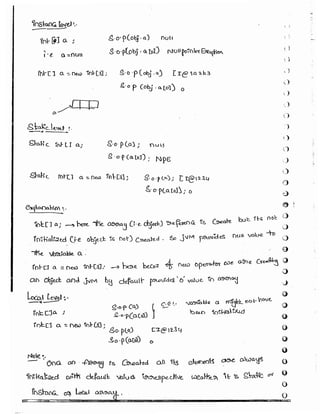 Instance level:-
int [] a ; S.o.p(obj.a) null
i.e a=null S.o.p(obj.a[0]) NullPointerException
int [] a = new int[3]; S.o.p (obj.a) [I@1a2b3
S.o.p (obj.a[0]) 0
a
Static level :-
Static int [] a; S.o.p(a) ; null
S.o.p (a[0]) ; NPE
Static int[] a = new int[3]; S.o.p(a); [I@1234
S.o.p(a[0]); 0
Explanation :-
int[] a; → here the array (i.e object) is create but its not
initialized (i.e object is not) created. So JVM provides null value to
the variable a.
int[] a = new int[3]; → here becoz of new operator we are creating
an object and JVM by default provides '0' value in array
Local level :-
int []a ; S.o.p(a) S.o.p(a[0]) } C.E :- variable a might not have been initialized
int[] a = new int[3]; S.o.p(a) [I@1234
S.o.p(a[0]) 0
Note :-
Once an Array is created all its elements are always
initialized with default value irrespective weather it is static or
instance or local array.